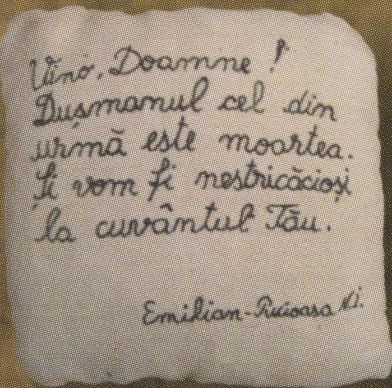 Vino, Doamne!
Dușmanul cel din
urmă este moartea.
Și vom fi nestricăcioși
la cuvântul Tău.
Emilian-Pucioasa N.I.